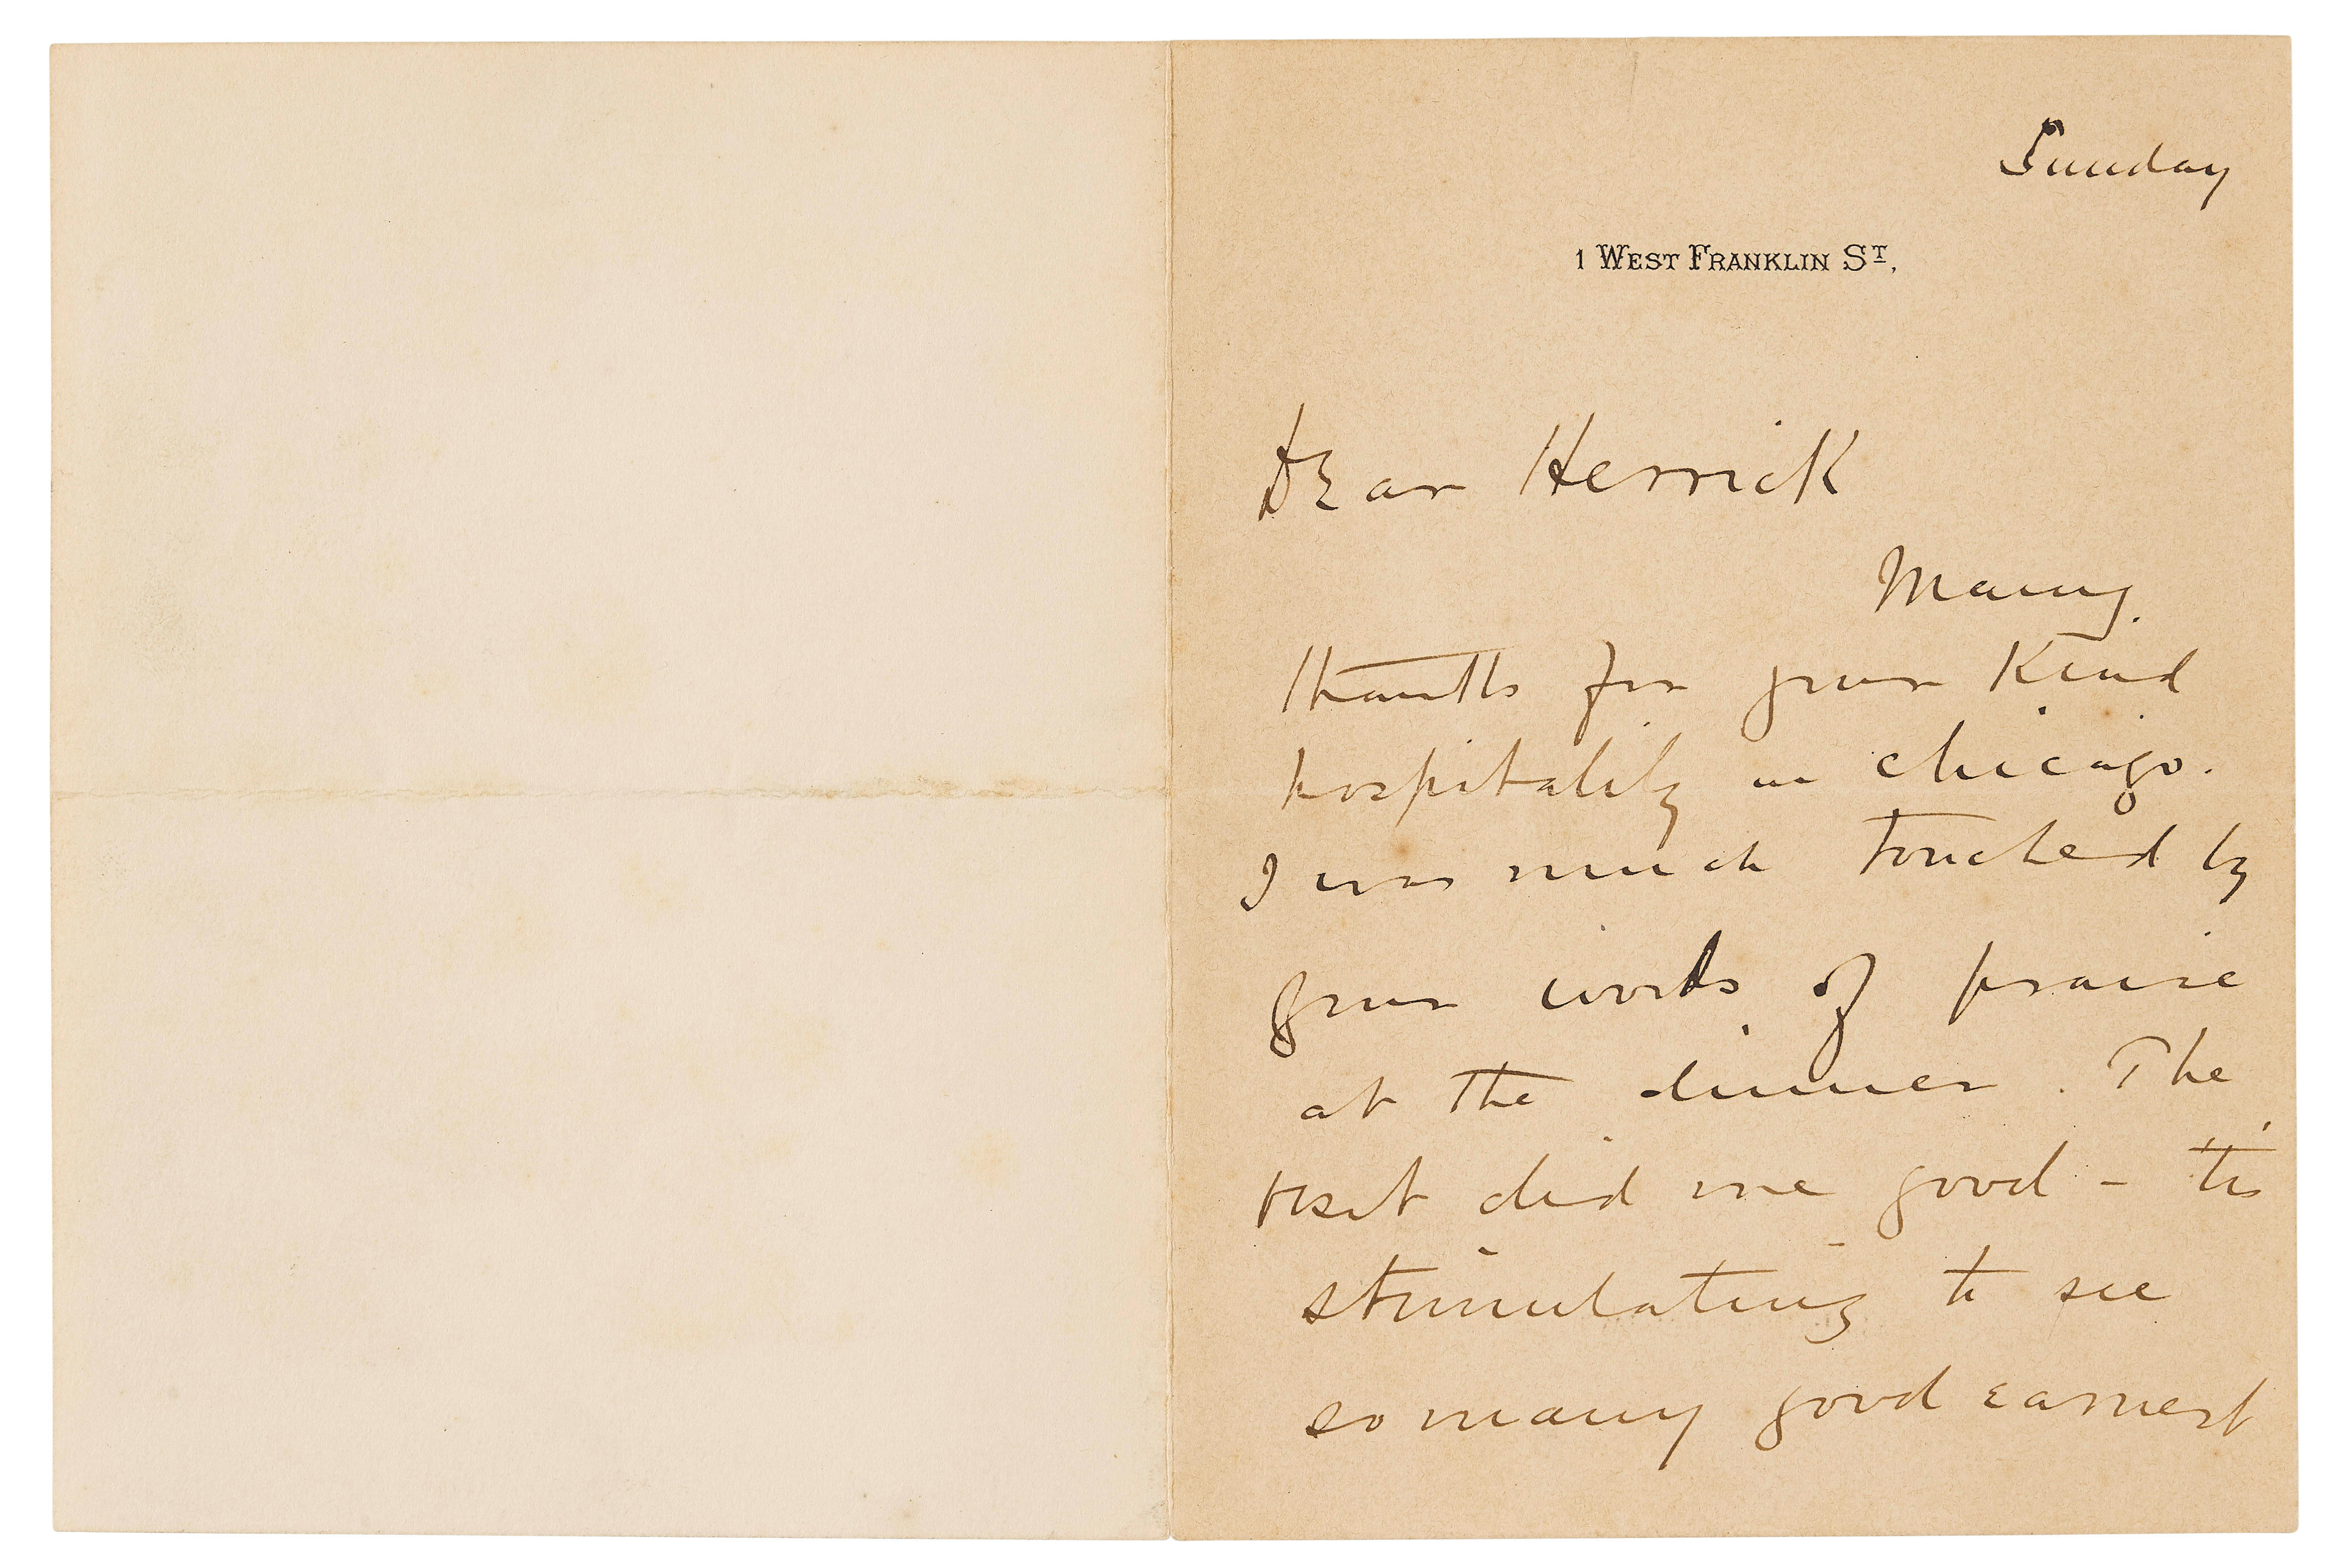 Sunday
1 WEST FRANKLIN ST,
Dear Herrick
Many
thanks for your kind
hospitality in chicago.
I was much touched by
your words of praise
at the dinner. The
visit did me good - 'tis
stimulating to see
so many good earnest